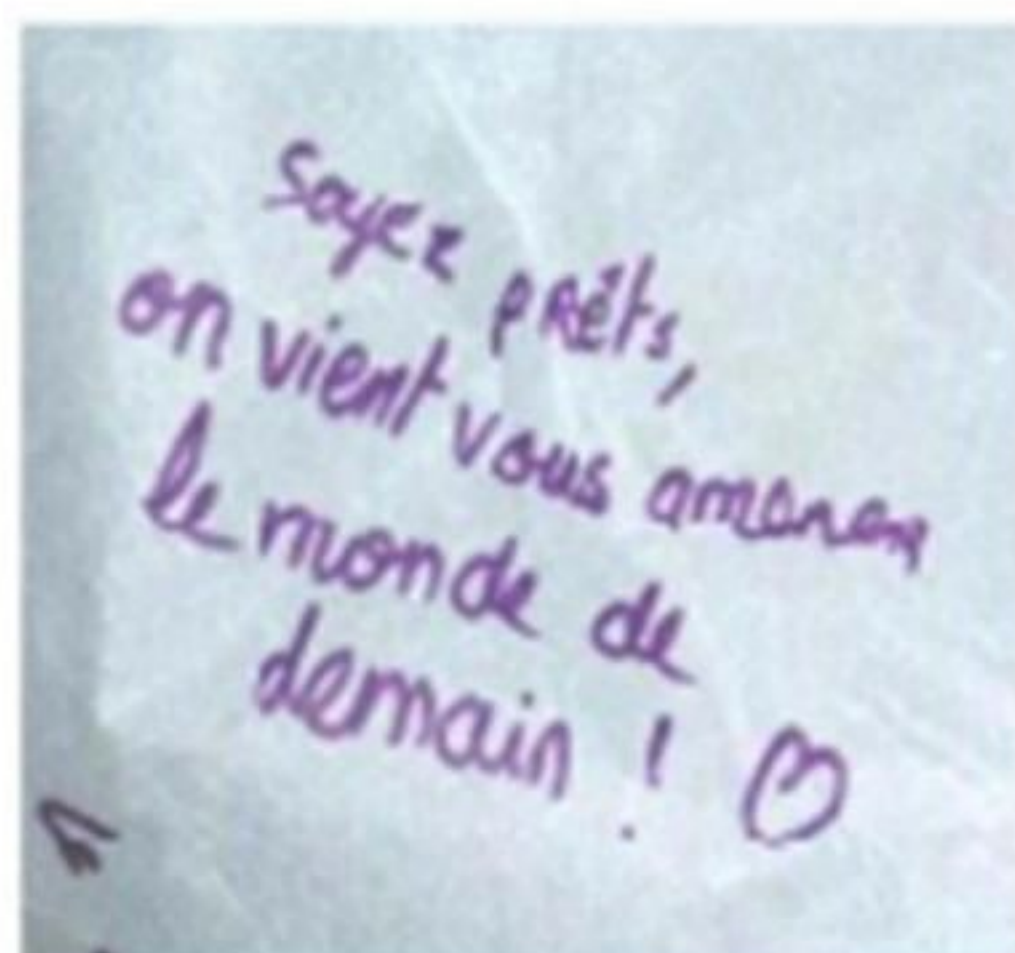 Soyez prêts,
on vient vous amener
le monde de
demain ! ♡